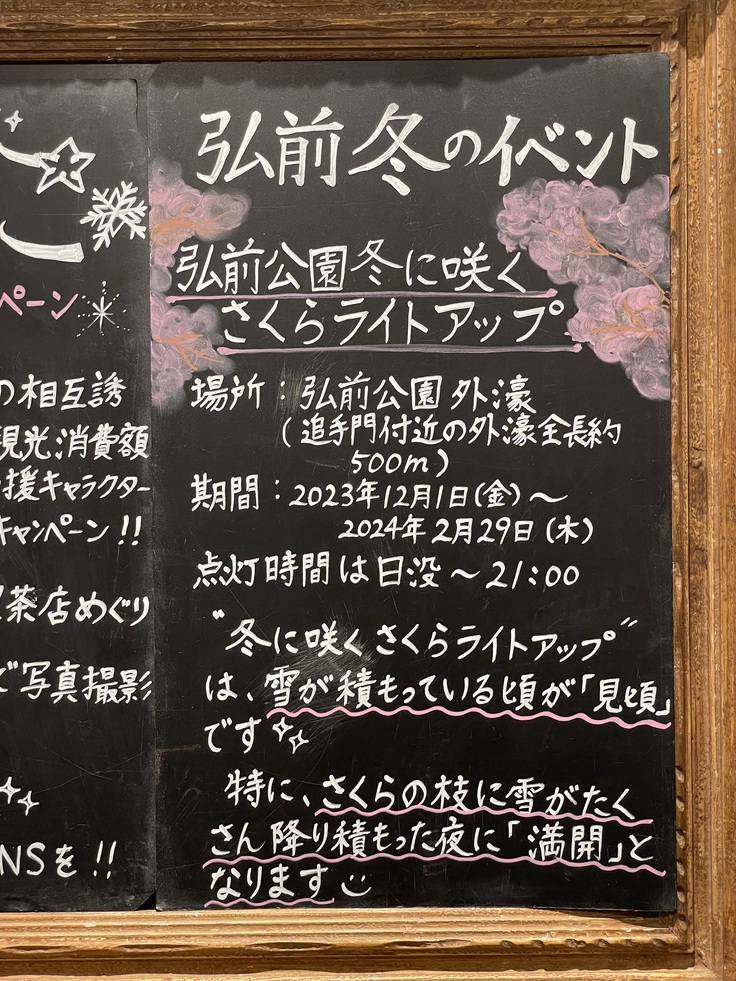 ペーン
の相互誘
現光消費額
援キャラクター
キャンペーン!!
茶店めぐり
ご写真撮影
NSを!!
弘前冬のイベント
弘前公園冬に咲く
さくらライトアップ
場所:弘前公園外濠
(追手門付近の外濠全長約
500m)
期間:2023年12月1日(金)~
2024年2月29日(木)
点灯時間は日没~21:00
"冬に咲くさくらライトアップ"
は、雪が積もっている頃が「見頃」
です
特に、さくらの枝に雪がたく
さん降り積もった夜に「満開」と
なります